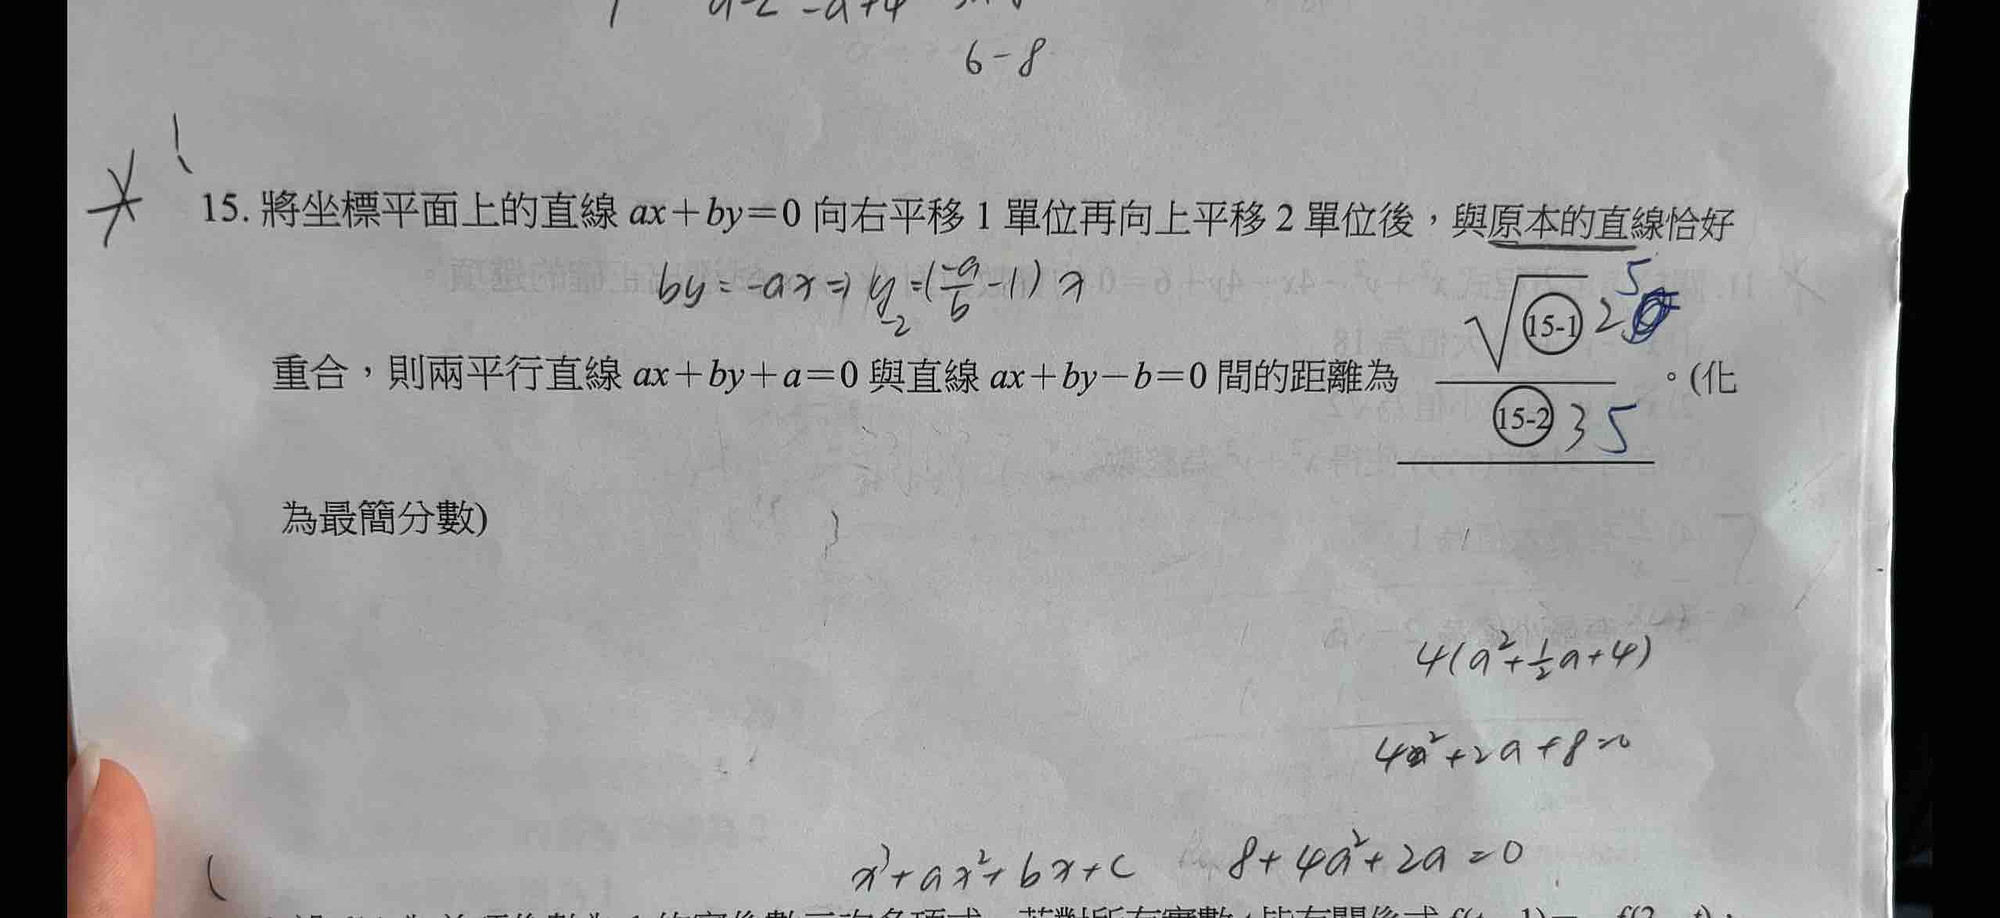 6-8
15. 將坐標平面上的直線 ax+by=0 向右平移 1 單位再向上平移 2 單位後，與原本的直線恰好
by = -ax ⇒ y-2 = (-a/b -1) x
重合，則兩平行直線 ax+by+a=0 與直線 ax+by-b=0 間的距離為 √(15-1) 2 5 / (15-2) 3 5 。(化
為最簡分數)
4(a²+½a+4)
4a²+2a+8=0
x³+ax²+bx+c 8+4a²+2a=0